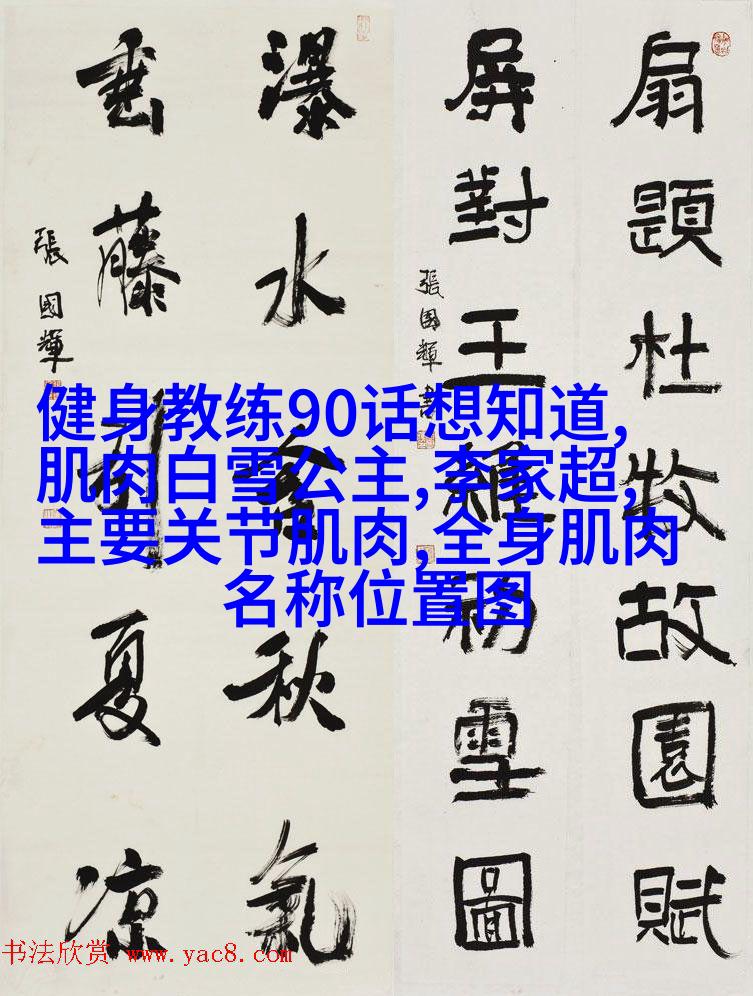 扇題杜牧故園賦
屏對王維初雪圖
張國輝書
瀑水含秋氣
垂藤引夏凉
張國輝
健身教练90话想知道,
肌肉白雪公主,李家超,
主要关节肌肉,全身肌肉
名称位置图
书法欣赏 www.yac8.com